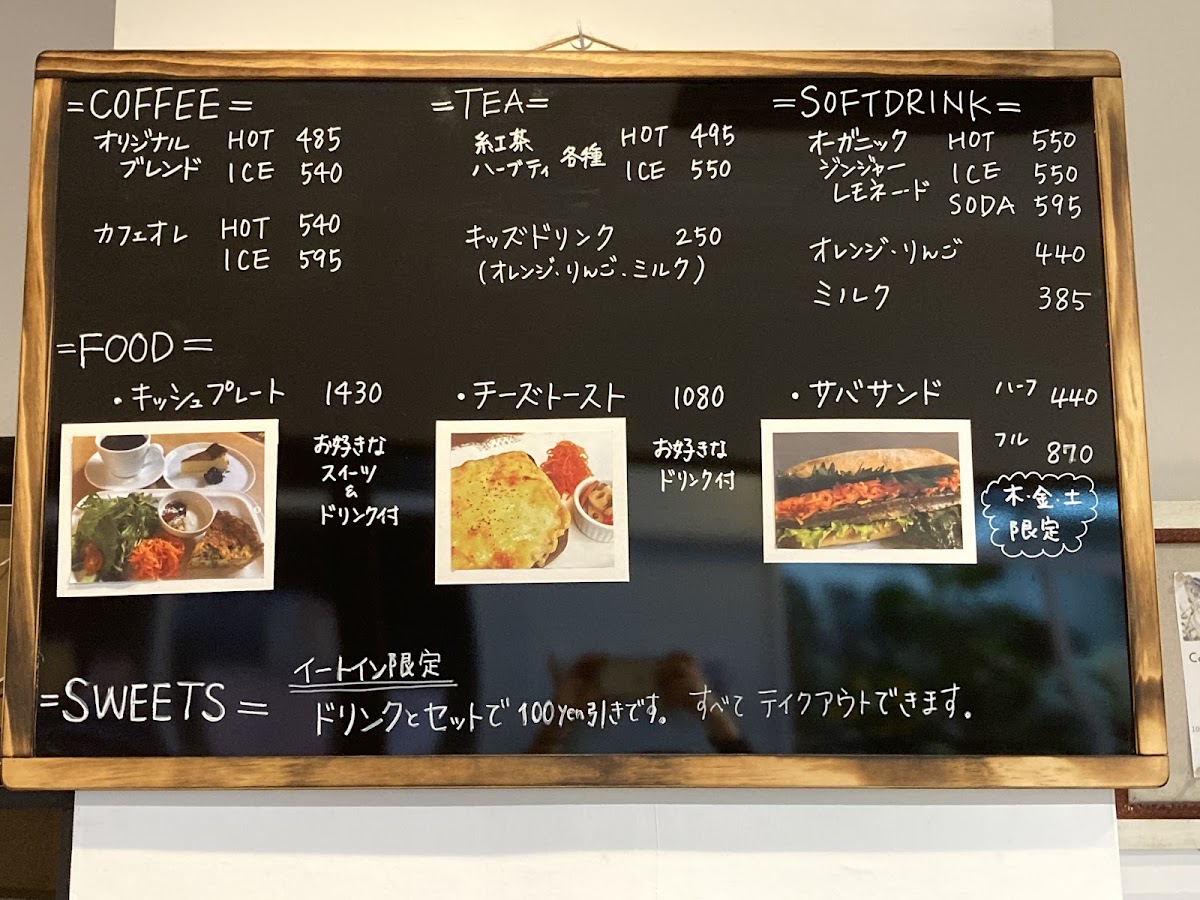 =COFFEE=
オリジナル HOT 485
ブレンド ICE 540
カフェオレ HOT 540
ICE 595
=TEA=
紅茶 各種 HOT 495
ハーブティ ICE 550
キッズドリンク 250
(オレンジ・りんご・ミルク)
=SOFTDRINK=
オーガニック HOT 550
ジンジャー ICE 550
レモネード SODA 595
オレンジ・りんご 440
ミルク 385
=FOOD=
・キッシュプレート 1430
お好きな
スイーツ
&
ドリンク付
・チーズトースト 1080
お好きな
ドリンク付
・サバサンド ハーフ 440
フル 870
木・金・土
限定
=SWEETS=
イートイン限定
ドリンクとセットで 100yen引きです。 すべて テイクアウトできます。